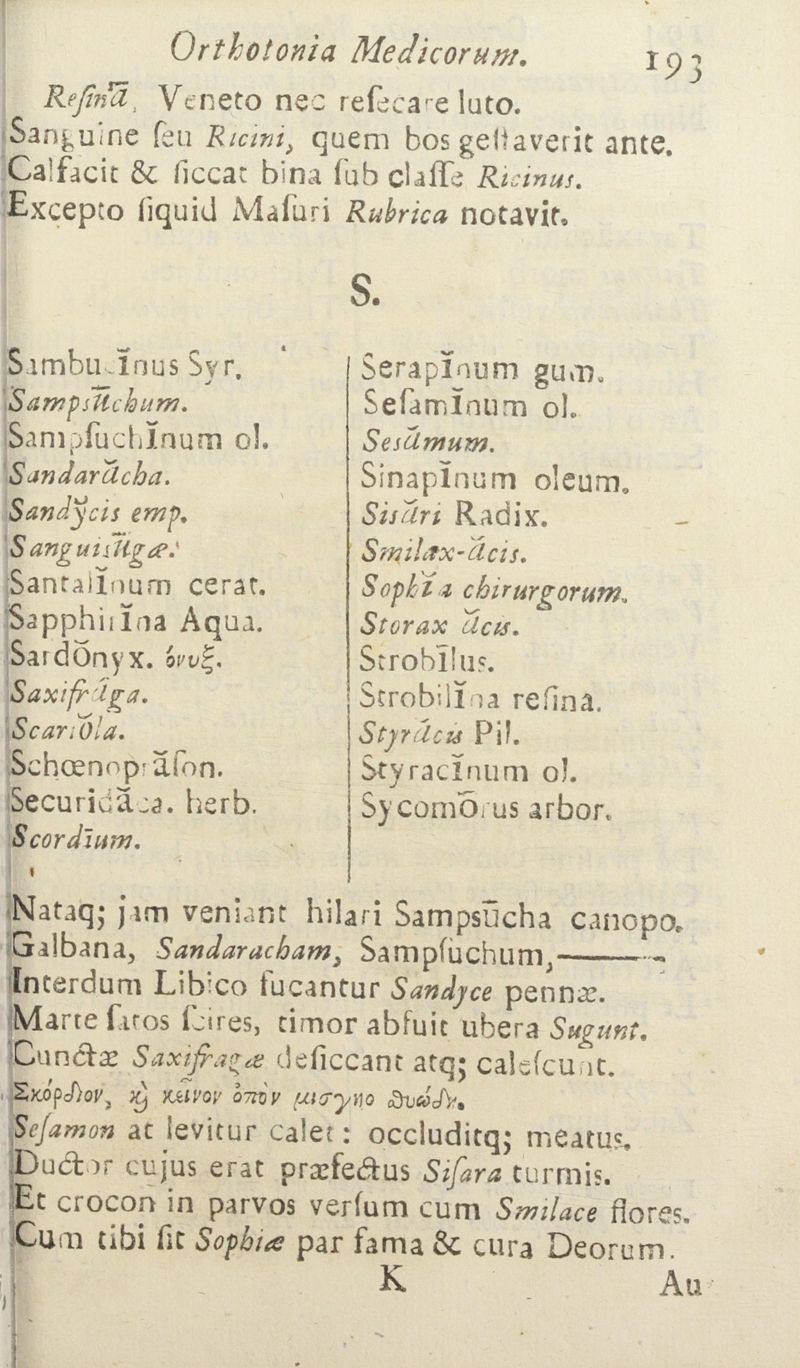 Orthotonia Medicorum. 193
Reſinā, Veneto nec reſecare luto.
Sanguine ſeu Ricini, quem bos geſtaverit ante.
Calfacit & ſiccat bina ſub claſſe Ricinus.
Excepto ſiquid Maſuri Rubrica notavit.
S.
Sambucīnus Syr.
Sampsūchum.
Sampſuchīnum ol.
Sandarăcha.
Sandy̆cis emp.
Sanguisūgæ.
Santalīnum cerat.
Sapphirīna Aqua.
Sardŏnyx. ὄνυξ.
Saxifrăga.
Scariŏla.
Schœnoprăſon.
Securidăca. herb.
Scordĭum.
Serapīnum gum.
Seſamīnum ol.
Sesămum.
Sinapīnum oleum.
Sisări Radix.
Smilax-ācis.
Sophīa chirurgorum.
Storax ăcis.
Strobīlus.
Strobilīna reſina.
Styrăcis Pil.
Styracīnum ol.
Sycomŏrus arbor.
Nataq; jam veniant hilari Sampsūcha canopo.
Galbana, Sandaracham, Sampſuchum,———
Interdum Libico fucantur Sandyce pennæ.
Marte ſatos ſcires, timor abfuit ubera Sugunt.
Cunctæ Saxifragæ deſiccant atq; caleſcunt.
Σκόρδιον, ϗ κεῖνον ὀπὸν μισγηο
Seſamon at levitur calet: occluditq; meatus.
Ductor cujus erat præfectus Siſara turmis.
Et crocon in parvos verſum cum Smilace flores.
Cum tibi ſit Sophiæ par fama & cura Deorum.
K Au